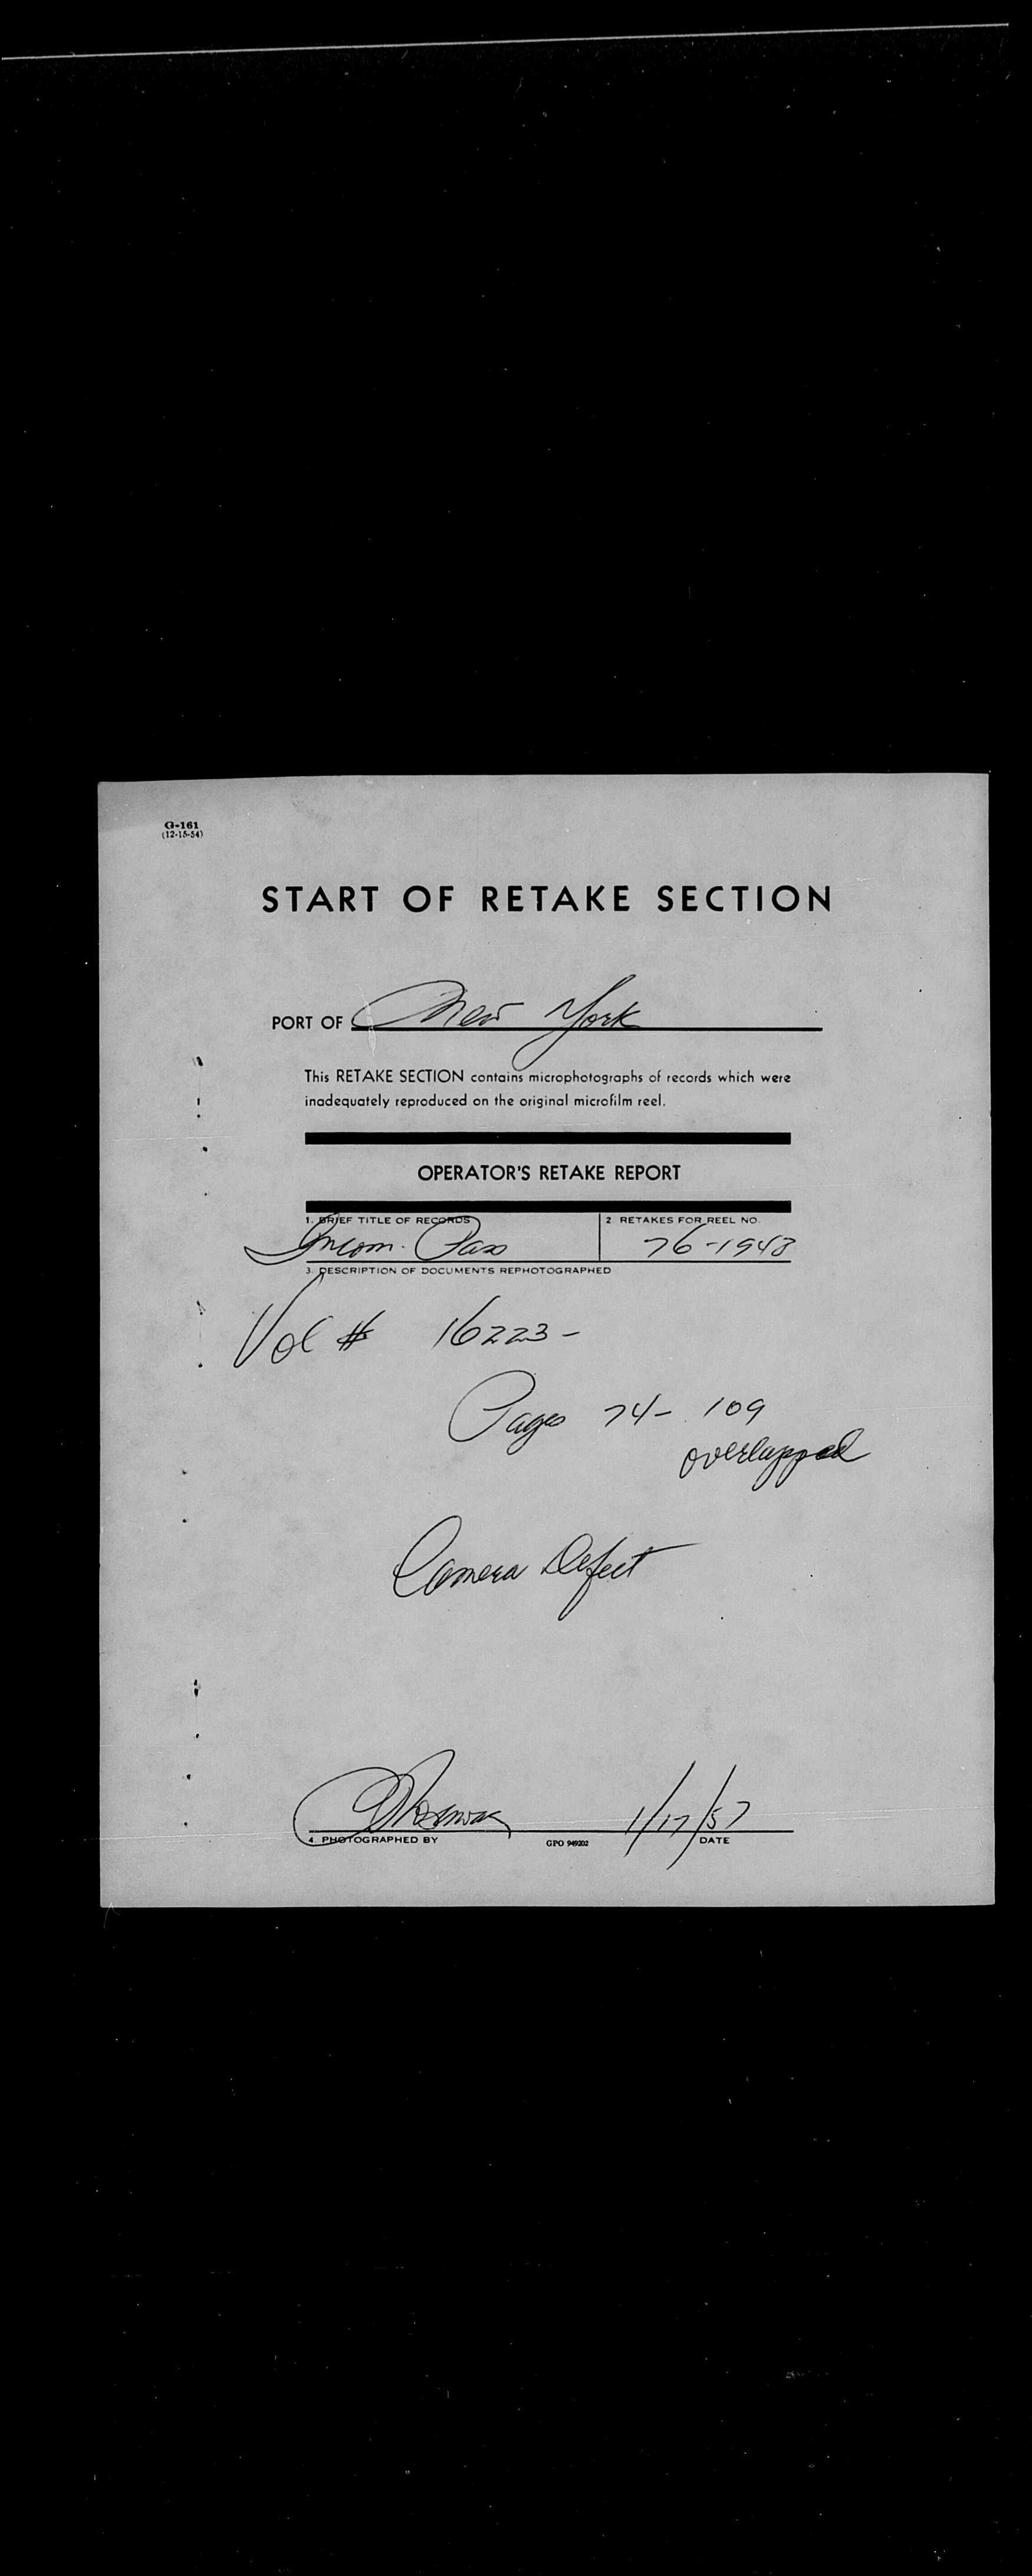 G-161
(12-15-54)
START OF RETAKE SECTION
PORT OF New York
This RETAKE SECTION contains microphotographs of records which were
inadequately reproduced on the original microfilm reel.
OPERATOR'S RETAKE REPORT
1. BRIEF TITLE OF RECORDS 2. RETAKES FOR REEL NO.
Incom. Pass 76-1948
3. DESCRIPTION OF DOCUMENTS REPHOTOGRAPHED
Vol # 16223-
Pages 74- 109
overlapped
Camera Defect
1/17/57
4. PHOTOGRAPHED BY GPO 949202 DATE